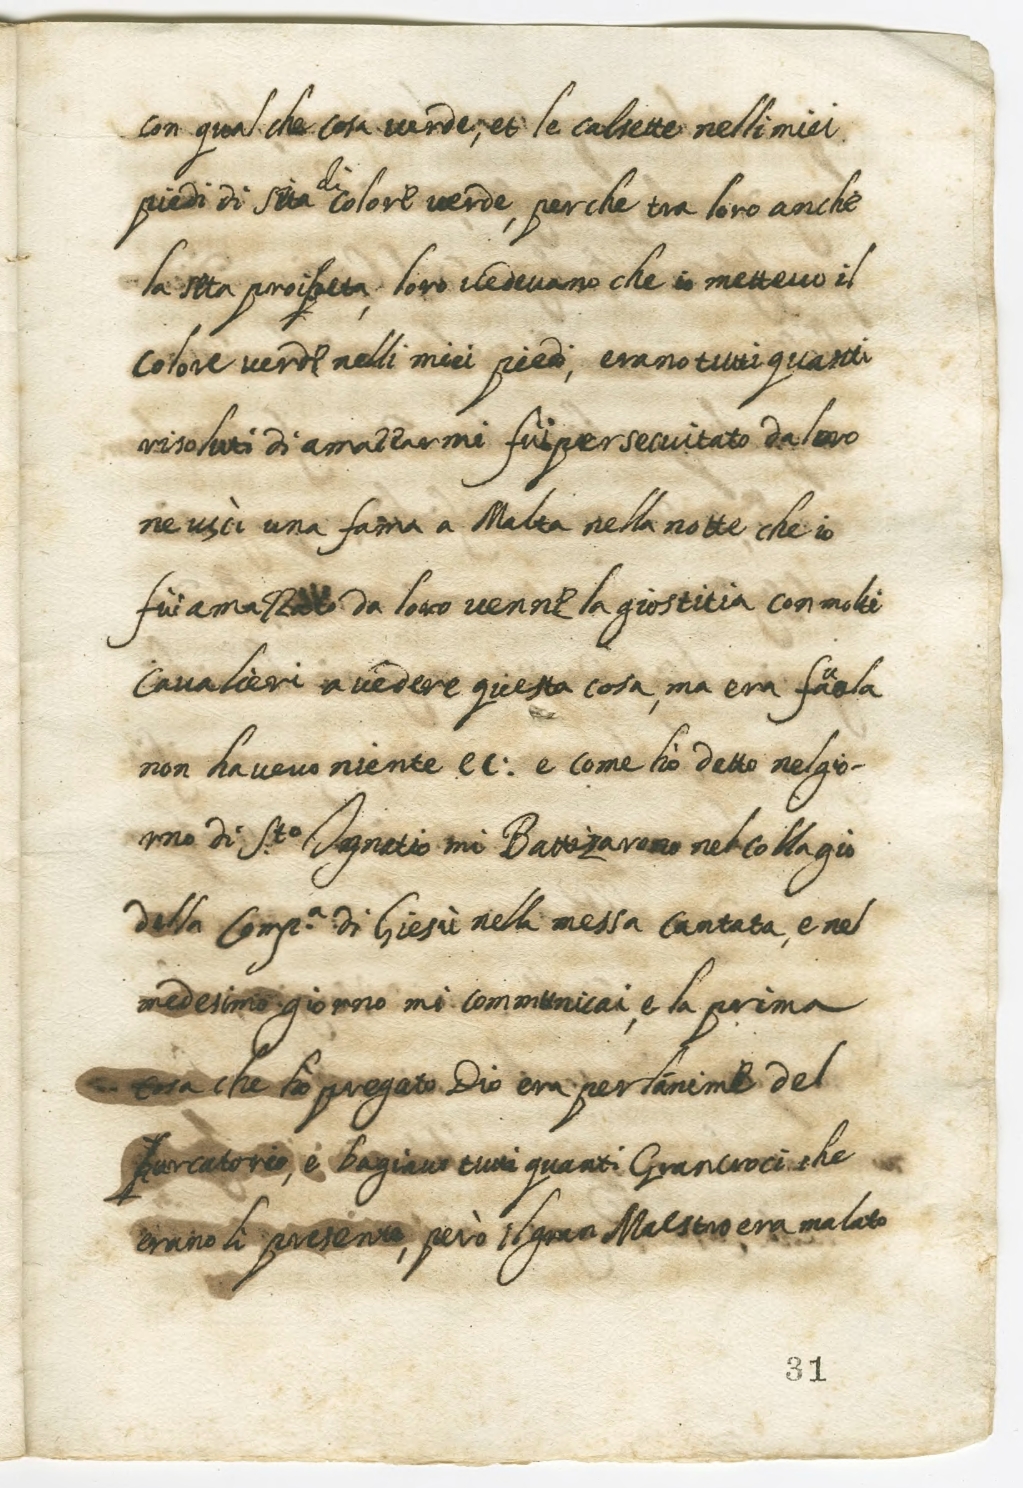 con qual che cosa verde, et le calsette nelli miei
piedi di sita di colore verde, perche tra loro anche
la sita proibeta, loro vedevano che io mettevo il
colore verde nelli miei piedi, erano tutti quanti
risoluti di amazzarmi fui persecuitato da loro
ne usci una fama a Malta nella notte che io
fui amazzato da loro venne la giostitia con molti
Cavalieri a vedere questa cosa, ma era
non havevo niente ec: e come hò detto nel gio-
rno di S.to Ignatio mi Battizareno nel collagio
della Comp.a di Giesù nella messa cantata, e nel
medesimo giorno mi communicai, e la prima
cosa che hò pregato Dio era per lanime del
Purcatorio, e bagiavo tutti quanti Grancroci che
erano li presente, però il gran Maestro era malato
31